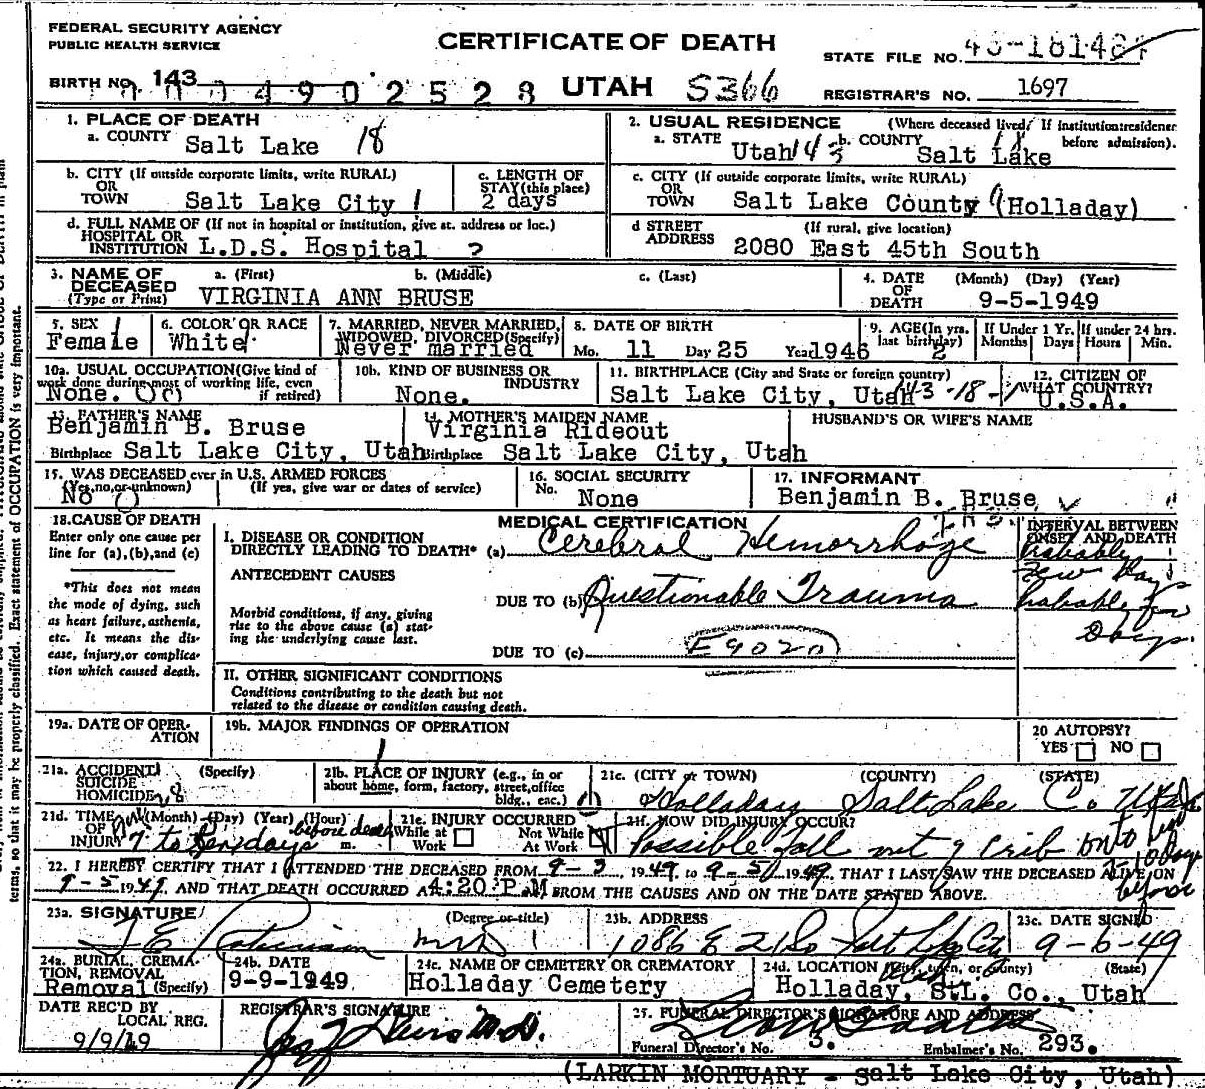 FEDERAL SECURITY AGENCY
PUBLIC HEALTH SERVICE
CERTIFICATE OF DEATH
STATE FILE NO.
BIRTH NO. 143
4 9 0 2 5 2 8
UTAH S366
REGISTRAR'S NO. 1697
1. PLACE OF DEATH
a. COUNTY Salt Lake 18
2. USUAL RESIDENCE (Where deceased lived. If institution: residence before admission).
a. STATE Utah 143 b. COUNTY Salt Lake 18
b. CITY (If outside corporate limits, write RURAL) OR TOWN Salt Lake City 1
c. LENGTH OF STAY (this place) 2 days
c. CITY (If outside corporate limits, write RURAL) OR TOWN Salt Lake County (Holladay)
d. FULL NAME OF (If not in hospital or institution, give st. address or loc.) HOSPITAL OR INSTITUTION L.D.S. Hospital ?
d STREET ADDRESS (If rural, give location) 2080 East 45th South
3. NAME OF DECEASED (Type or Print) a. (First) b. (Middle) c. (Last)
VIRGINIA ANN BRUSE
4. DATE OF DEATH (Month) (Day) (Year) 9-5-1949
5. SEX Female 1
6. COLOR OR RACE White 1
7. MARRIED, NEVER MARRIED, WIDOWED, DIVORCED (Specify) Never married
8. DATE OF BIRTH Mo. 11 Day 25 Year 1946
9. AGE (In yrs. last birthday) 2
If Under 1 Yr. Months Days
If under 24 hrs. Hours Min.
10a. USUAL OCCUPATION (Give kind of work done during most of working life, even if retired) None.
10b. KIND OF BUSINESS OR INDUSTRY None.
11. BIRTHPLACE (City and State or foreign country) Salt Lake City, Utah 143-18-1
12. CITIZEN OF WHAT COUNTRY? U.S.A.
13. FATHER'S NAME Benjamin B. Bruse
Birthplace Salt Lake City, Utah
14. MOTHER'S MAIDEN NAME Virginia Rideout
Birthplace Salt Lake City, Utah
HUSBAND'S OR WIFE'S NAME
15. WAS DECEASED ever in U.S. ARMED FORCES (Yes, no, or unknown) (If yes, give war or dates of service)
No 0
16. SOCIAL SECURITY No. None
17. INFORMANT Benjamin B. Bruse
18. CAUSE OF DEATH
Enter only one cause per line for (a), (b), and (c)
*This does not mean the mode of dying, such as heart failure, asthenia, etc. It means the disease, injury, or complication which caused death.
MEDICAL CERTIFICATION
I. DISEASE OR CONDITION DIRECTLY LEADING TO DEATH* (a) Cerebral Hemorrhage
INTERVAL BETWEEN ONSET AND DEATH
Probably Few Days
ANTECEDENT CAUSES
Morbid conditions, if any, giving rise to the above cause (a) stating the underlying cause last.
DUE TO (b) Questionable Trauma
Probably Few Days.
DUE TO (c) E9020
II. OTHER SIGNIFICANT CONDITIONS
Conditions contributing to the death but not related to the disease or condition causing death.
19a. DATE OF OPERATION
19b. MAJOR FINDINGS OF OPERATION
20 AUTOPSY? YES NO
21a. ACCIDENT SUICIDE HOMICIDE (Specify)
21b. PLACE OF INJURY (e.g., in or about home, form, factory, street, office bldg., enc.)
21c. (CITY or TOWN) (COUNTY) (STATE)
Holladay Salt Lake Co Utah
21d. TIME OF INJURY (Month) (Day) (Year) (Hour) m.
7 to 10 days before death
21e. INJURY OCCURRED While at Work Not While At Work
21f. HOW DID INJURY OCCUR?
Possible Fall out of crib onto 7-10 days before
22. I HEREBY CERTIFY THAT I ATTENDED THE DECEASED FROM 9-3, 1949, to 9-5, 1949, THAT I LAST SAW THE DECEASED ALIVE ON
9-5 1949, AND THAT DEATH OCCURRED AT 4:20 P.M. FROM THE CAUSES AND ON THE DATE STATED ABOVE.
23a. SIGNATURE (Degree or title)
23b. ADDRESS 1086 E 21 So Salt Lake City
23c. DATE SIGNED 9-6-49
24a. BURIAL, CREMATION, REMOVAL (Specify) Removal
24b. DATE 9-9-1949
24c. NAME OF CEMETERY OR CREMATORY Holladay Cemetery
24d. LOCATION (City, town, or county) (State) Holladay, S.L. Co., Utah
DATE REC'D BY LOCAL REG. 9/9/49
REGISTRAR'S SIGNATURE
25. FUNERAL DIRECTOR'S SIGNATURE AND ADDRESS
Funeral Director's No. 3. Embalmer's No. 293.
(LARKIN MORTUARY - Salt Lake City, Utah)